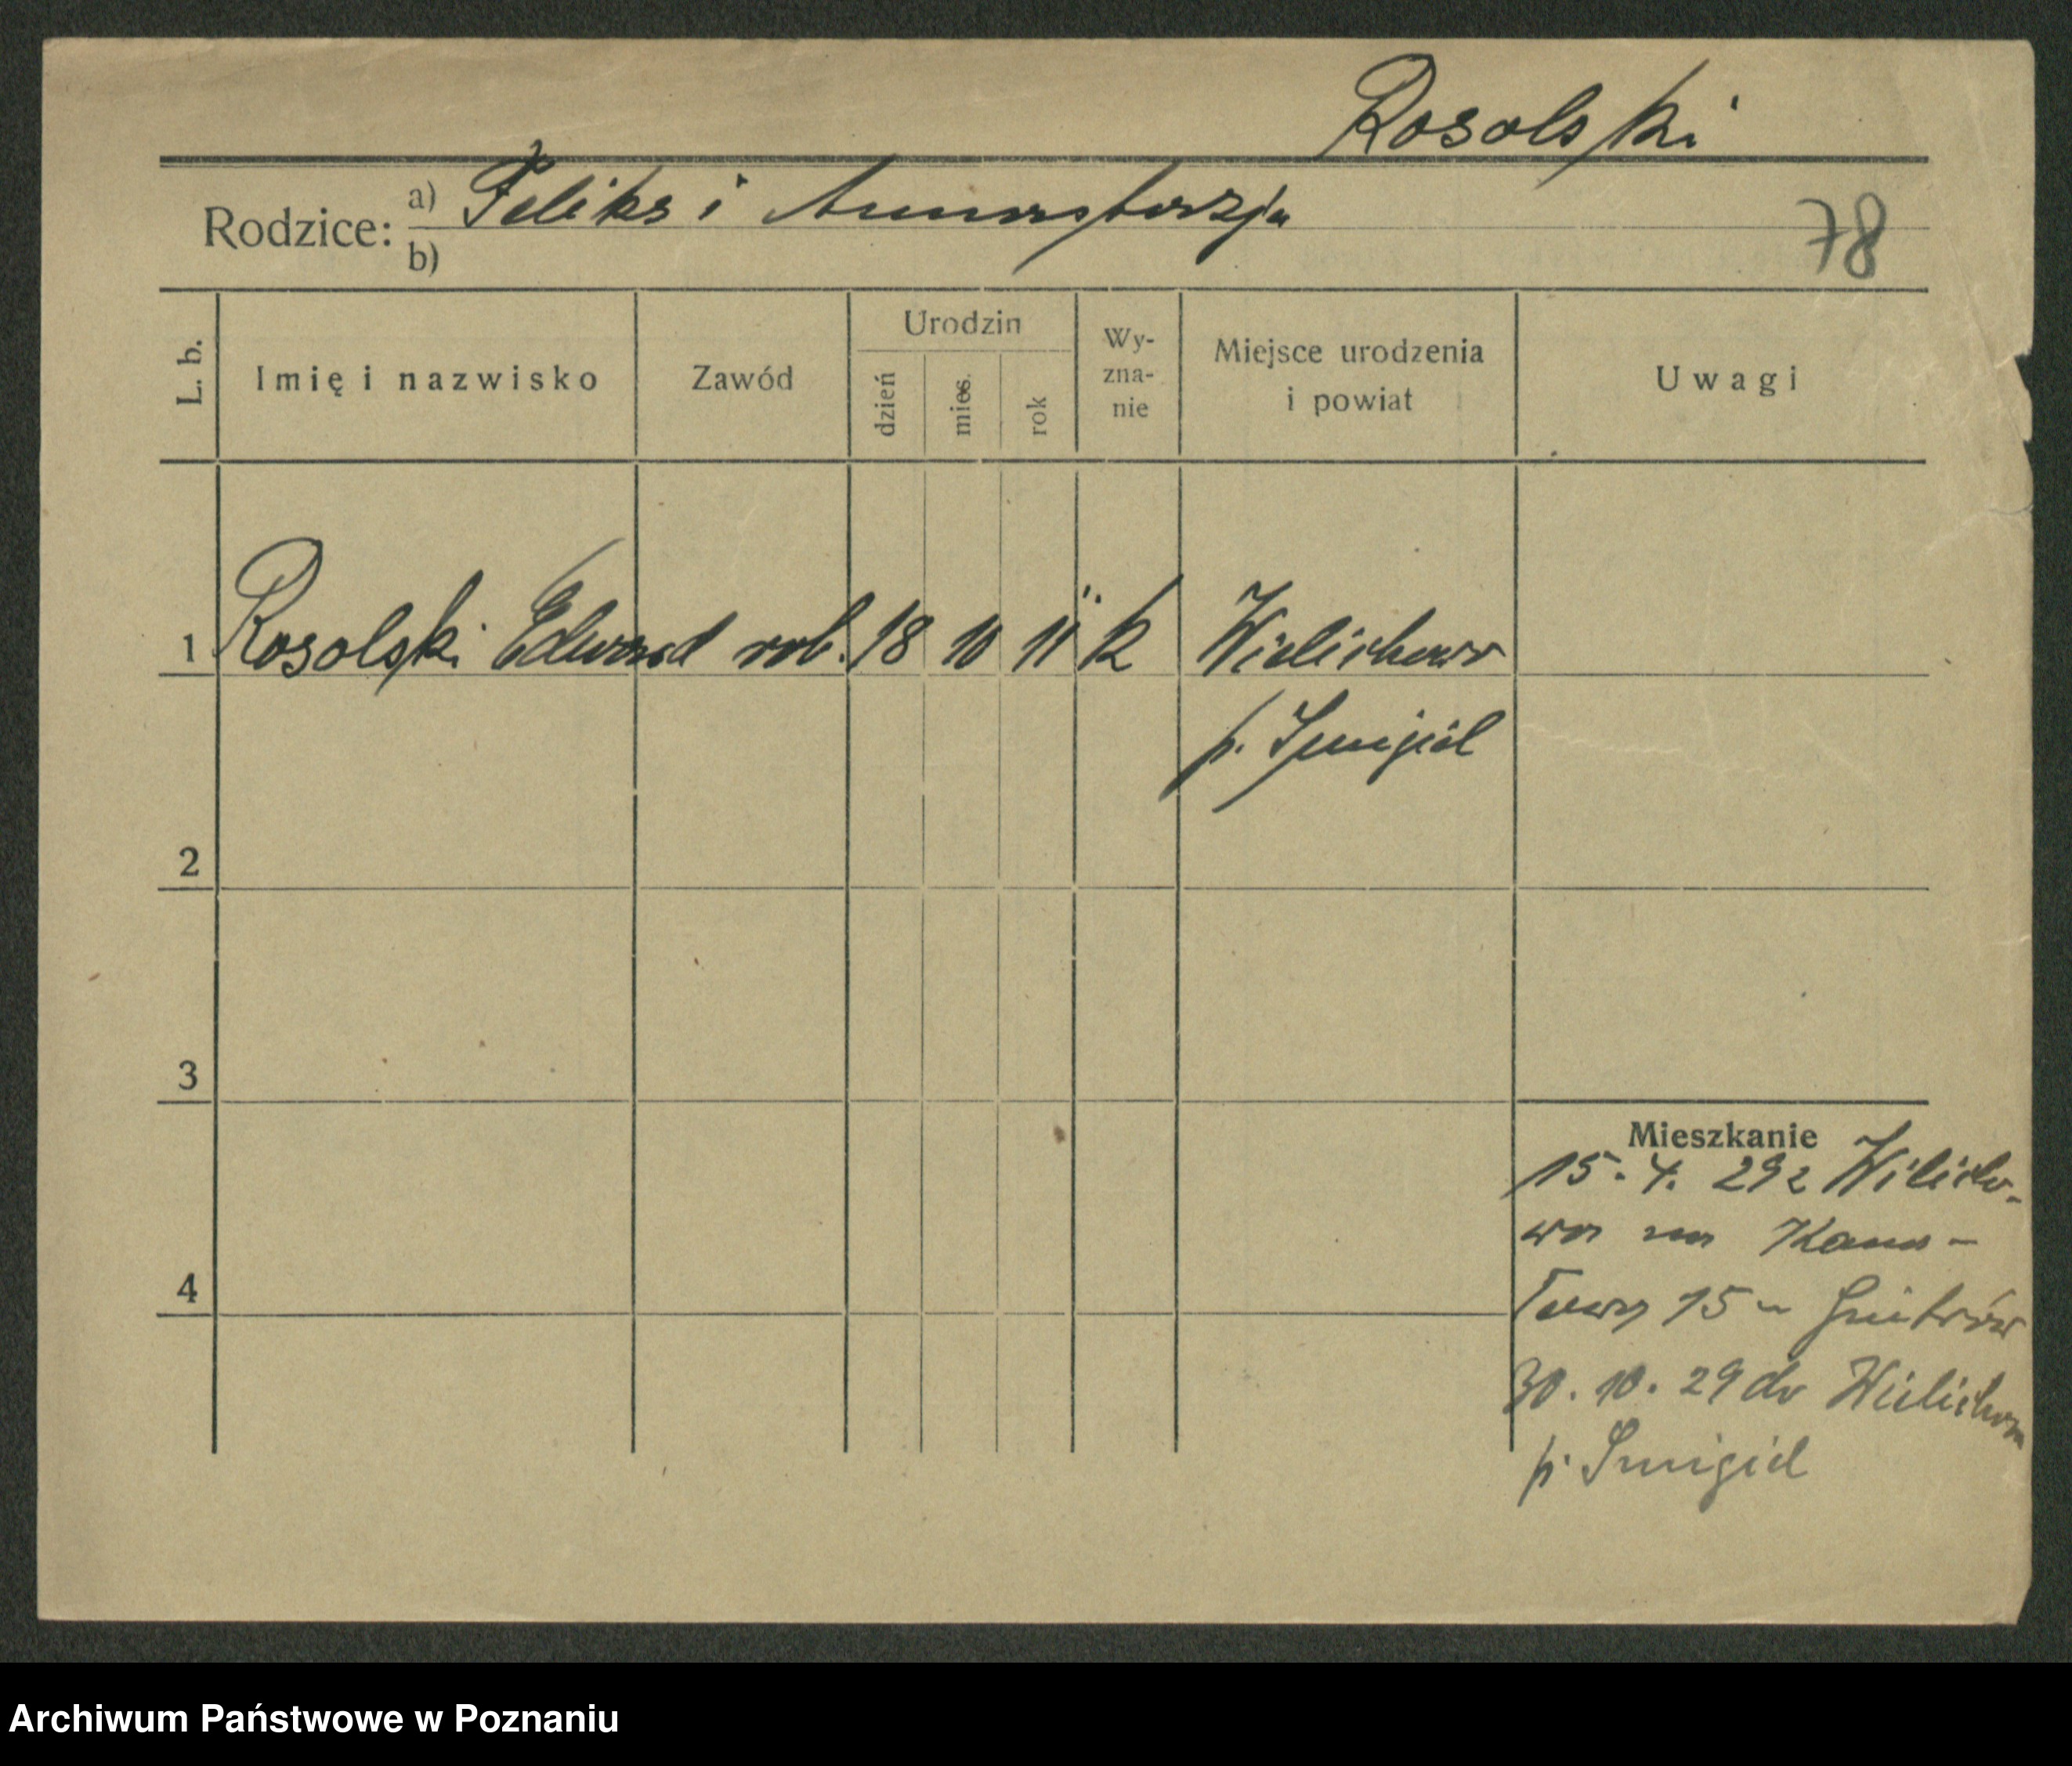 Rosolski
Rodzice: a) Feliks i Anastazja
b)
78
L. b.
Imię i nazwisko
Zawód
Urodzin
dzień
mies.
rok
Wy-
zna-
nie
Miejsce urodzenia
i powiat
Uwagi
1 Rosolski Edward rob. 18 10 11 k Wielichowo
p. Śmigiel
2
3
4
Mieszkanie
15. 4. 29 z Wielicho-
wa na Kana-
łowy 15
30. 10. 29 do Wielichowa
p. Śmigiel
Archiwum Państwowe w Poznaniu